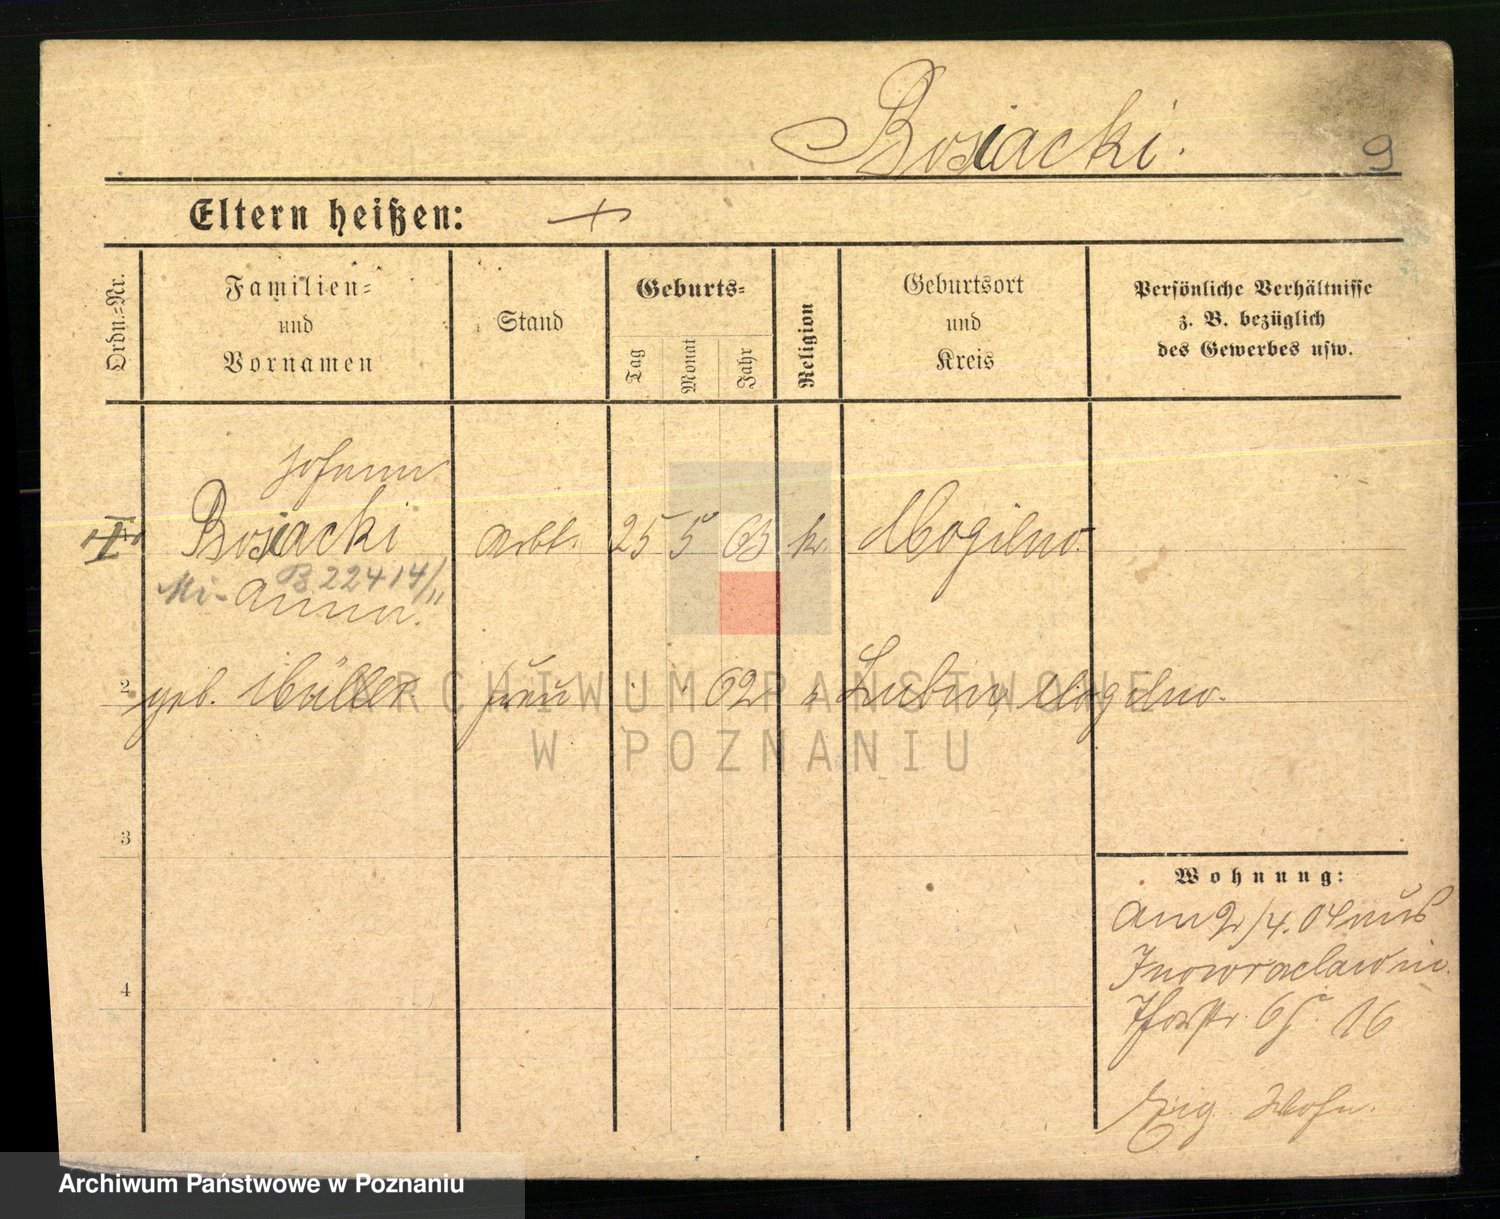 Bosiacki.
9
Eltern heißen:
Ordn.-Nr.
Familien-
und
Vornamen
Stand
Geburts-
Tag
Monat
Jahr
Religion
Geburtsort
und
Kreis
Persönliche Verhältnisse
z. B. bezüglich
des Gewerbes usw.
Johann
Bosiacki Arbt. 25 5 63 k. Mogilno.
B 22414/11
Anna.
2 geb. Müller Frau 62 Lubin, Mogilno.
3
Wohnung:
am 2/4. 04 aus
Inowraclaw in
4
16
Wohn.
ARCHIWUM PAŃSTWOWE
W POZNANIU
Archiwum Państwowe w Poznaniu